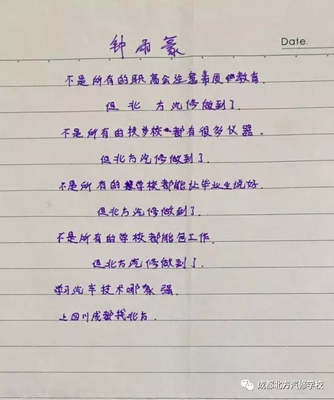 钟雨豪
Date.
不是所有的职高会注意素质教育
但 北 方 汽修做到了.
不是所有的技校都有很多仪器.
但北方汽修做到了.
不是所有的学校都能让毕业生说好.
但北方汽修做到了.
不是所有的学校都能包工作.
但北方汽修做到了.
学习汽车技术哪家强.
上四川成都找北方.
成都北方汽修学校